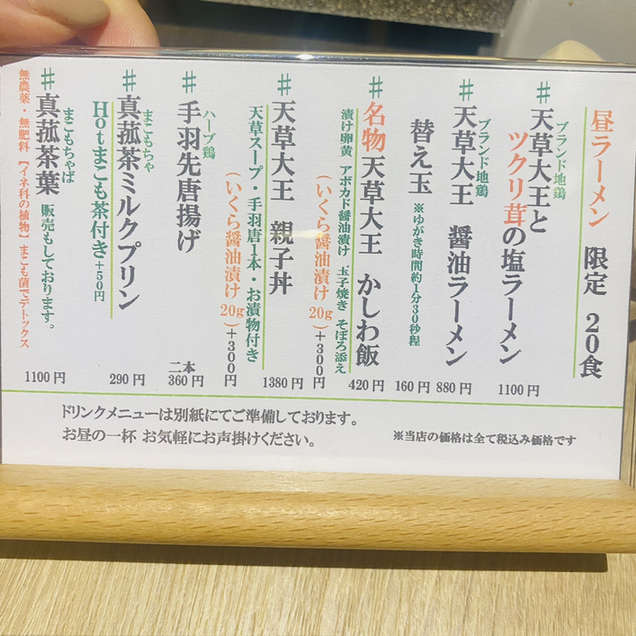 昼ラーメン 限定 20食
# 天草大王と
ブランド地鶏
ツクリ茸の塩ラーメン
1100円
# 天草大王 醤油ラーメン
ブランド地鶏
880円
替え玉 ※ゆがき時間約1分30秒程
160円
# 名物 天草大王 かしわ飯
420円
漬け卵黄 アボカド醤油漬け 玉子焼き そぼろ添え
(いくら醤油漬け 20g)+300円
# 天草大王 親子丼
1380円
天草スープ・手羽唐1本・お漬物付き
(いくら醤油漬け 20g)+300円
# 手羽先唐揚げ
ハーブ鶏
二本
360円
# 真菰茶ミルクプリン
まこもちゃ
Hotまこも茶付き+50円
290円
# 真菰茶葉 販売もしております。
まこもちゃば
無農薬・無肥料【イネ科の植物】まこも菌でデトックス
1100円
ドリンクメニューは別紙にてご準備しております。
お昼の一杯 お気軽にお声掛けください。
※当店の価格は全て税込み価格です